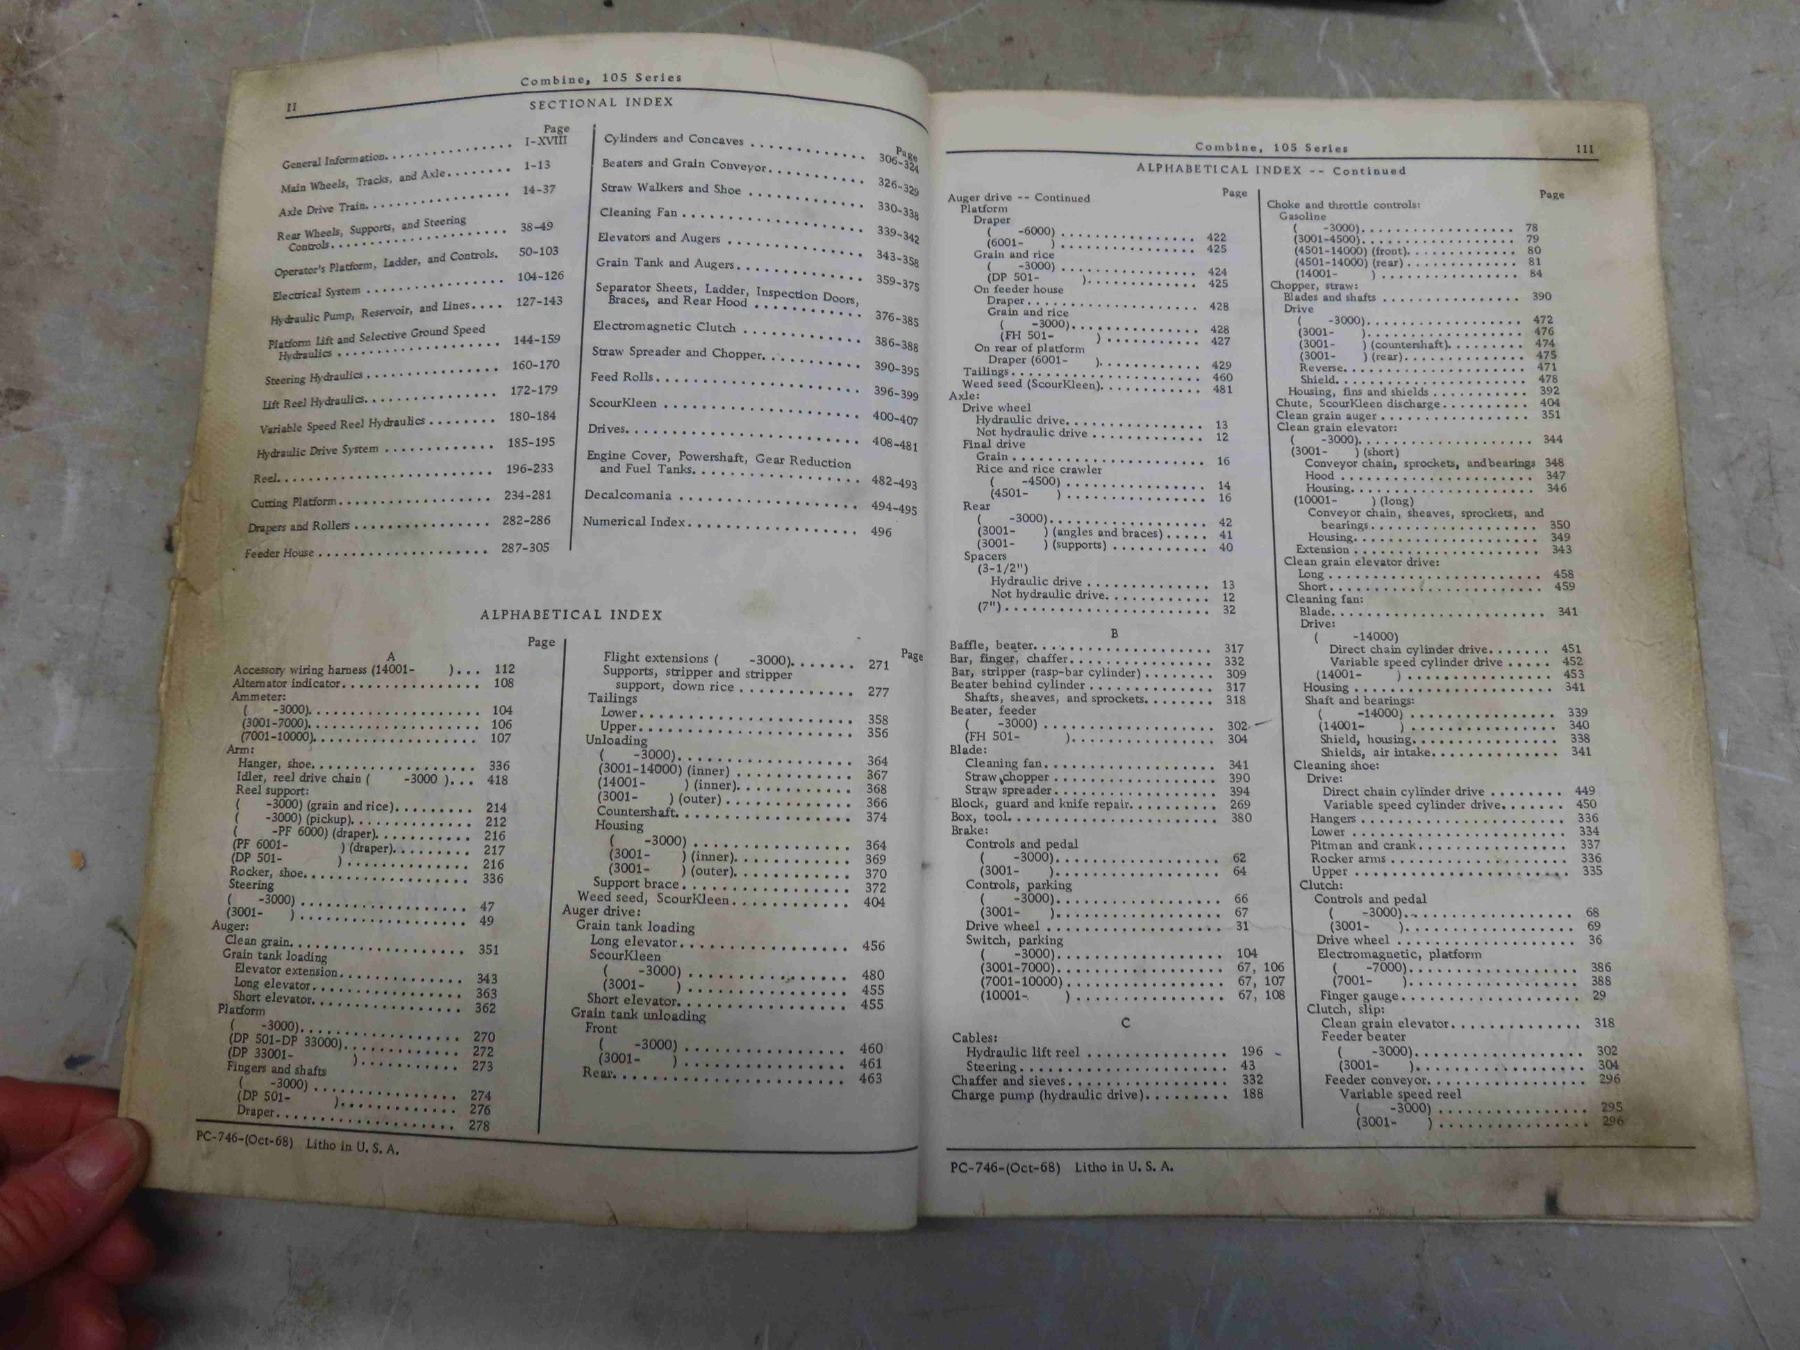 Combine, 105 Series
II
SECTIONAL INDEX
Page
General Information. . . . . . . . . . . . . . . . I-XVIII
Main Wheels, Tracks, and Axle. . . . . . . . 1-13
Axle Drive Train. . . . . . . . . . . . . . . . . 14-37
Rear Wheels, Supports, and Steering
Controls. . . . . . . . . . . . . . . . . . . . . 38-49
Operator's Platform, Ladder, and Controls. 50-103
Electrical System . . . . . . . . . . . . . . . . 104-126
Hydraulic Pump, Reservoir, and Lines. . . . 127-143
Platform Lift and Selective Ground Speed
Hydraulics . . . . . . . . . . . . . . . . . . . 144-159
Steering Hydraulics . . . . . . . . . . . . . . . 160-170
Lift Reel Hydraulics. . . . . . . . . . . . . . . 172-179
Variable Speed Reel Hydraulics . . . . . . . 180-184
Hydraulic Drive System . . . . . . . . . . . . 185-195
Reel. . . . . . . . . . . . . . . . . . . . . . . . 196-233
Cutting Platform. . . . . . . . . . . . . . . . . 234-281
Drapers and Rollers . . . . . . . . . . . . . . . 282-286
Feeder House . . . . . . . . . . . . . . . . . . 287-305
Page
Cylinders and Concaves . . . . . . . . . . . . 306-324
Beaters and Grain Conveyor. . . . . . . . . . 326-329
Straw Walkers and Shoe . . . . . . . . . . . . 330-338
Cleaning Fan . . . . . . . . . . . . . . . . . . 339-342
Elevators and Augers . . . . . . . . . . . . . . 343-358
Grain Tank and Augers. . . . . . . . . . . . . 359-375
Separator Sheets, Ladder, Inspection Doors,
Braces, and Rear Hood . . . . . . . . . . . . 376-385
Electromagnetic Clutch . . . . . . . . . . . . 386-388
Straw Spreader and Chopper. . . . . . . . . . 390-395
Feed Rolls. . . . . . . . . . . . . . . . . . . . 396-399
ScourKleen . . . . . . . . . . . . . . . . . . . 400-407
Drives. . . . . . . . . . . . . . . . . . . . . . . 408-481
Engine Cover, Powershaft, Gear Reduction
and Fuel Tanks. . . . . . . . . . . . . . . . . 482-493
Decalcomania . . . . . . . . . . . . . . . . . . 494-495
Numerical Index. . . . . . . . . . . . . . . . . 496
ALPHABETICAL INDEX
Page
A
Accessory wiring harness (14001- ) . . . 112
Alternator indicator. . . . . . . . . . . . . . . 108
Ammeter:
( -3000). . . . . . . . . . . . . . . . . . . 104
(3001-7000). . . . . . . . . . . . . . . . . . 106
(7001-10000). . . . . . . . . . . . . . . . . 107
Arm:
Hanger, shoe. . . . . . . . . . . . . . . . . . 336
Idler, reel drive chain ( -3000 ). . . 418
Reel support:
( -3000) (grain and rice). . . . . . . . . 214
( -3000) (pickup). . . . . . . . . . . . . . 212
( -PF 6000) (draper). . . . . . . . . . . 216
(PF 6001- ) (draper). . . . . . . . . 217
(DP 501- ) . . . . . . . . . . . . . . 216
Rocker, shoe. . . . . . . . . . . . . . . . . . 336
Steering
( -3000) . . . . . . . . . . . . . . . . . . 47
(3001- ) . . . . . . . . . . . . . . . . . . 49
Auger:
Clean grain. . . . . . . . . . . . . . . . . . . 351
Grain tank loading
Elevator extension. . . . . . . . . . . . . . 343
Long elevator. . . . . . . . . . . . . . . . . 363
Short elevator. . . . . . . . . . . . . . . . . 362
Platform
( -3000). . . . . . . . . . . . . . . . . . . 270
(DP 501-DP 33000). . . . . . . . . . . . . 272
(DP 33001- ) . . . . . . . . . . . . 273
Fingers and shafts
( -3000) . . . . . . . . . . . . . . . . . . 274
(DP 501- ). . . . . . . . . . . . . . . 276
Draper. . . . . . . . . . . . . . . . . . . . . 278
Page
Flight extensions ( -3000). . . . . . . 271
Supports, stripper and stripper
support, down rice . . . . . . . . . . . . 277
Tailings
Lower. . . . . . . . . . . . . . . . . . . . . 358
Upper. . . . . . . . . . . . . . . . . . . . . 356
Unloading
( -3000). . . . . . . . . . . . . . . . . . 364
(3001-14000) (inner) . . . . . . . . . . . . 367
(14001- ) (inner). . . . . . . . . . . . 368
(3001- ) (outer) . . . . . . . . . . . . . 366
Countershaft. . . . . . . . . . . . . . . . . . 374
Housing
( -3000) . . . . . . . . . . . . . . . . . . 364
(3001- ) (inner). . . . . . . . . . . . . 369
(3001- ) (outer). . . . . . . . . . . . . 370
Support brace. . . . . . . . . . . . . . . . . 372
Weed seed, ScourKleen. . . . . . . . . . . . 404
Auger drive:
Grain tank loading
Long elevator. . . . . . . . . . . . . . . . . 456
ScourKleen
( -3000) . . . . . . . . . . . . . . . . . 480
(3001- ) . . . . . . . . . . . . . . . . . 455
Short elevator. . . . . . . . . . . . . . . . . 455
Grain tank unloading
Front
( -3000) . . . . . . . . . . . . . . . . . 460
(3001- ) . . . . . . . . . . . . . . . . . 461
Rear. . . . . . . . . . . . . . . . . . . . . . 463
PC-746-(Oct-68) Litho in U. S. A.
Combine, 105 Series
111
ALPHABETICAL INDEX -- Continued
Page
Auger drive -- Continued
Platform
Draper
( -6000) . . . . . . . . . . . . . . . . . 422
(6001- ) . . . . . . . . . . . . . . . . . 425
Grain and rice
( -3000) . . . . . . . . . . . . . . . . . 424
(DP 501- ). . . . . . . . . . . . . . 425
On feeder house
Draper. . . . . . . . . . . . . . . . . . . . 428
Grain and rice
( -3000). . . . . . . . . . . . . . . . . 428
(FH 501- ) . . . . . . . . . . . . . 427
On rear of platform
Draper (6001- ). . . . . . . . . . . . 429
Tailings. . . . . . . . . . . . . . . . . . . . . 460
Weed seed (ScourKleen). . . . . . . . . . . . 481
Axle:
Drive wheel
Hydraulic drive. . . . . . . . . . . . . . . . 13
Not hydraulic drive . . . . . . . . . . . . . 12
Final drive
Grain . . . . . . . . . . . . . . . . . . . . . 16
Rice and rice crawler
( -4500) . . . . . . . . . . . . . . . . . 14
(4501- ) . . . . . . . . . . . . . . . . . 16
Rear
( -3000). . . . . . . . . . . . . . . . . . 42
(3001- ) (angles and braces) . . . . . 41
(3001- ) (supports) . . . . . . . . . . . 40
Spacers
(3-1/2")
Hydraulic drive . . . . . . . . . . . . . . 13
Not hydraulic drive. . . . . . . . . . . . . 12
(7"). . . . . . . . . . . . . . . . . . . . . . 32
B
Baffle, beater. . . . . . . . . . . . . . . . . . 317
Bar, finger, chaffer. . . . . . . . . . . . . . . 332
Bar, stripper (rasp-bar cylinder) . . . . . . . 309
Beater behind cylinder . . . . . . . . . . . . . 317
Shafts, sheaves, and sprockets. . . . . . . . 318
Beater, feeder
( -3000) . . . . . . . . . . . . . . . . . . 302
(FH 501- ). . . . . . . . . . . . . . . 304
Blade:
Cleaning fan. . . . . . . . . . . . . . . . . . 341
Straw chopper . . . . . . . . . . . . . . . . . 390
Straw spreader. . . . . . . . . . . . . . . . . 394
Block, guard and knife repair. . . . . . . . . . 269
Box, tool. . . . . . . . . . . . . . . . . . . . . 380
Brake:
Controls and pedal
( -3000). . . . . . . . . . . . . . . . . . 62
(3001- ). . . . . . . . . . . . . . . . . . 64
Controls, parking
( -3000). . . . . . . . . . . . . . . . . . 66
(3001- ). . . . . . . . . . . . . . . . . . 67
Drive wheel . . . . . . . . . . . . . . . . . . 31
Switch, parking
( -3000). . . . . . . . . . . . . . . . . . 104
(3001-7000). . . . . . . . . . . . . . . . . . 67, 106
(7001-10000). . . . . . . . . . . . . . . . . 67, 107
(10001- ) . . . . . . . . . . . . . . . . 67, 108
C
Cables:
Hydraulic lift reel . . . . . . . . . . . . . . . 196
Steering. . . . . . . . . . . . . . . . . . . . . 43
Chaffer and sieves. . . . . . . . . . . . . . . . 332
Charge pump (hydraulic drive). . . . . . . . . 188
Page
Choke and throttle controls:
Gasoline
( -3000). . . . . . . . . . . . . . . . . . 78
(3001-4500). . . . . . . . . . . . . . . . . . 79
(4501-14000) (front). . . . . . . . . . . . . 80
(4501-14000) (rear) . . . . . . . . . . . . . 81
(14001- ) . . . . . . . . . . . . . . . . 84
Chopper, straw:
Blades and shafts . . . . . . . . . . . . . . . 390
Drive
( -3000). . . . . . . . . . . . . . . . . . 472
(3001- ). . . . . . . . . . . . . . . . . . 476
(3001- ) (countershaft). . . . . . . . . 474
(3001- ) (rear). . . . . . . . . . . . . . 475
Reverse. . . . . . . . . . . . . . . . . . . . 471
Shield. . . . . . . . . . . . . . . . . . . . . 478
Housing, fins and shields . . . . . . . . . . . 392
Chute, ScourKleen discharge. . . . . . . . . . 404
Clean grain auger . . . . . . . . . . . . . . . . 351
Clean grain elevator:
( -3000). . . . . . . . . . . . . . . . . . . 344
(3001- ) (short)
Conveyor chain, sprockets, and bearings 348
Hood . . . . . . . . . . . . . . . . . . . . . 347
Housing. . . . . . . . . . . . . . . . . . . . 346
(10001- ) (long)
Conveyor chain, sheaves, sprockets, and
bearings. . . . . . . . . . . . . . . . . . 350
Housing. . . . . . . . . . . . . . . . . . . . 349
Extension . . . . . . . . . . . . . . . . . . . 343
Clean grain elevator drive:
Long . . . . . . . . . . . . . . . . . . . . . . 458
Short. . . . . . . . . . . . . . . . . . . . . . 459
Cleaning fan:
Blade. . . . . . . . . . . . . . . . . . . . . . 341
Drive:
( -14000)
Direct chain cylinder drive. . . . . . . . 451
Variable speed cylinder drive . . . . . . 452
(14001- ) . . . . . . . . . . . . . . . . 453
Housing . . . . . . . . . . . . . . . . . . . . 341
Shaft and bearings:
( -14000) . . . . . . . . . . . . . . . . . 339
(14001- ) . . . . . . . . . . . . . . . . 340
Shield, housing. . . . . . . . . . . . . . . . 338
Shields, air intake. . . . . . . . . . . . . . 341
Cleaning shoe:
Drive:
Direct chain cylinder drive . . . . . . . . . 449
Variable speed cylinder drive. . . . . . . . 450
Hangers . . . . . . . . . . . . . . . . . . . . 336
Lower . . . . . . . . . . . . . . . . . . . . . 334
Pitman and crank. . . . . . . . . . . . . . . . 337
Rocker arms . . . . . . . . . . . . . . . . . . 336
Upper . . . . . . . . . . . . . . . . . . . . . 335
Clutch:
Controls and pedal
( -3000). . . . . . . . . . . . . . . . . . 68
(3001- ). . . . . . . . . . . . . . . . . . 69
Drive wheel . . . . . . . . . . . . . . . . . . 36
Electromagnetic, platform
( -7000). . . . . . . . . . . . . . . . . . 386
(7001- ). . . . . . . . . . . . . . . . . . 388
Finger gauge. . . . . . . . . . . . . . . . . . 29
Clutch, slip:
Clean grain elevator. . . . . . . . . . . . . . 318
Feeder beater
( -3000). . . . . . . . . . . . . . . . . . 302
(3001- ). . . . . . . . . . . . . . . . . . 304
Feeder conveyor. . . . . . . . . . . . . . . . 296
Variable speed reel
( -3000) . . . . . . . . . . . . . . . . . 295
(3001- ) . . . . . . . . . . . . . . . . . 296
PC-746-(Oct-68) Litho in U. S. A.